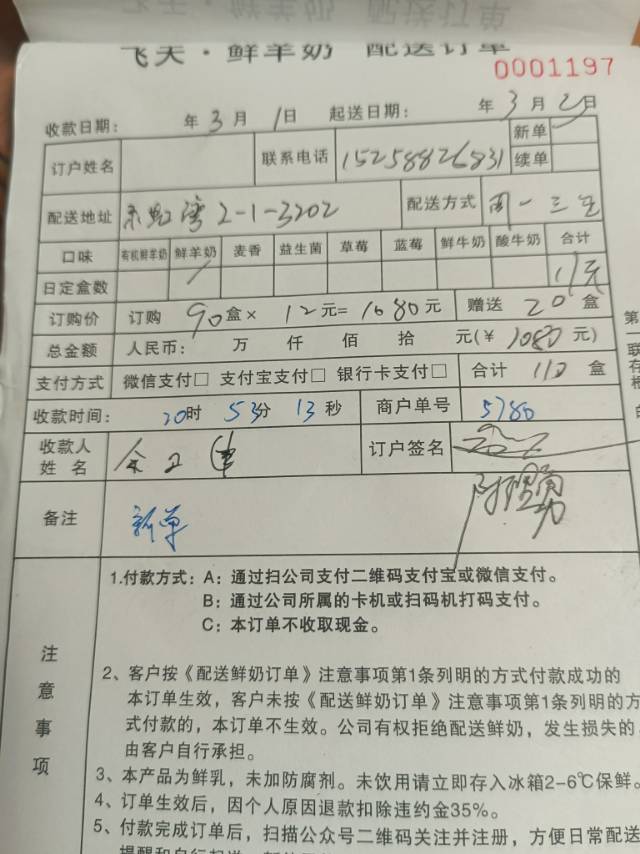 飞天·鲜羊奶 配送订单
0001197
收款日期： 年 3 月 1 日 起送日期： 年 3 月 2 日
订户姓名 联系电话 15258826831 新单
续单
配送地址 2-1-3202 配送方式 周一三五
口味 有机鲜羊奶 鲜羊奶 麦香 益生菌 草莓 蓝莓 鲜牛奶 酸牛奶 合计
日定盒数
订购价 订购 90 盒× 12 元= 1080 元 赠送 20 盒
总金额 人民币： 万 仟 佰 拾 元(¥ 1080 元)
支付方式 微信支付□ 支付宝支付□ 银行卡支付□ 合计 110 盒
收款时间： 20时 53分 13秒 商户单号 5780
收款人
姓 名 订户签名
备注 新单
注意事项
1.付款方式：A：通过扫公司支付二维码支付宝或微信支付。
B：通过公司所属的卡机或扫码机打码支付。
C：本订单不收取现金。
2、客户按《配送鲜奶订单》注意事项第1条列明的方式付款成功的
本订单生效，客户未按《配送鲜奶订单》注意事项第1条列明的方
式付款的，本订单不生效。公司有权拒绝配送鲜奶，发生损失的
由客户自行承担。
3、本产品为鲜乳，未加防腐剂。未饮用请立即存入冰箱2-6℃保鲜。
4、订单生效后，因个人原因退款扣除违约金35%。
5、付款完成订单后，扫描公众号二维码关注并注册，方便日常配送
第
联
存
根